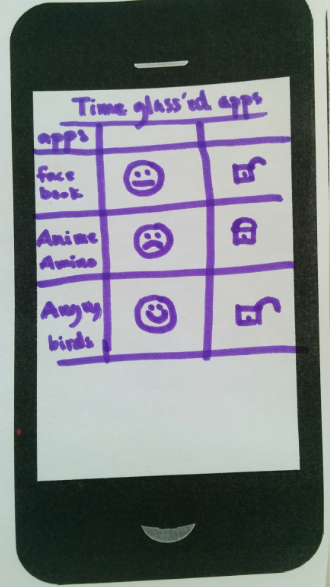 Time glass'ed apps
apps
face
book
Anime
Amino
Angry
birds